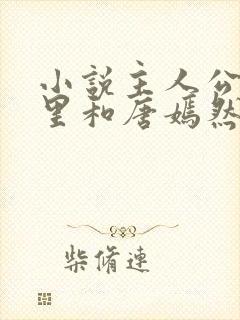 小说主人公
里和唐嫣然
柴脩連